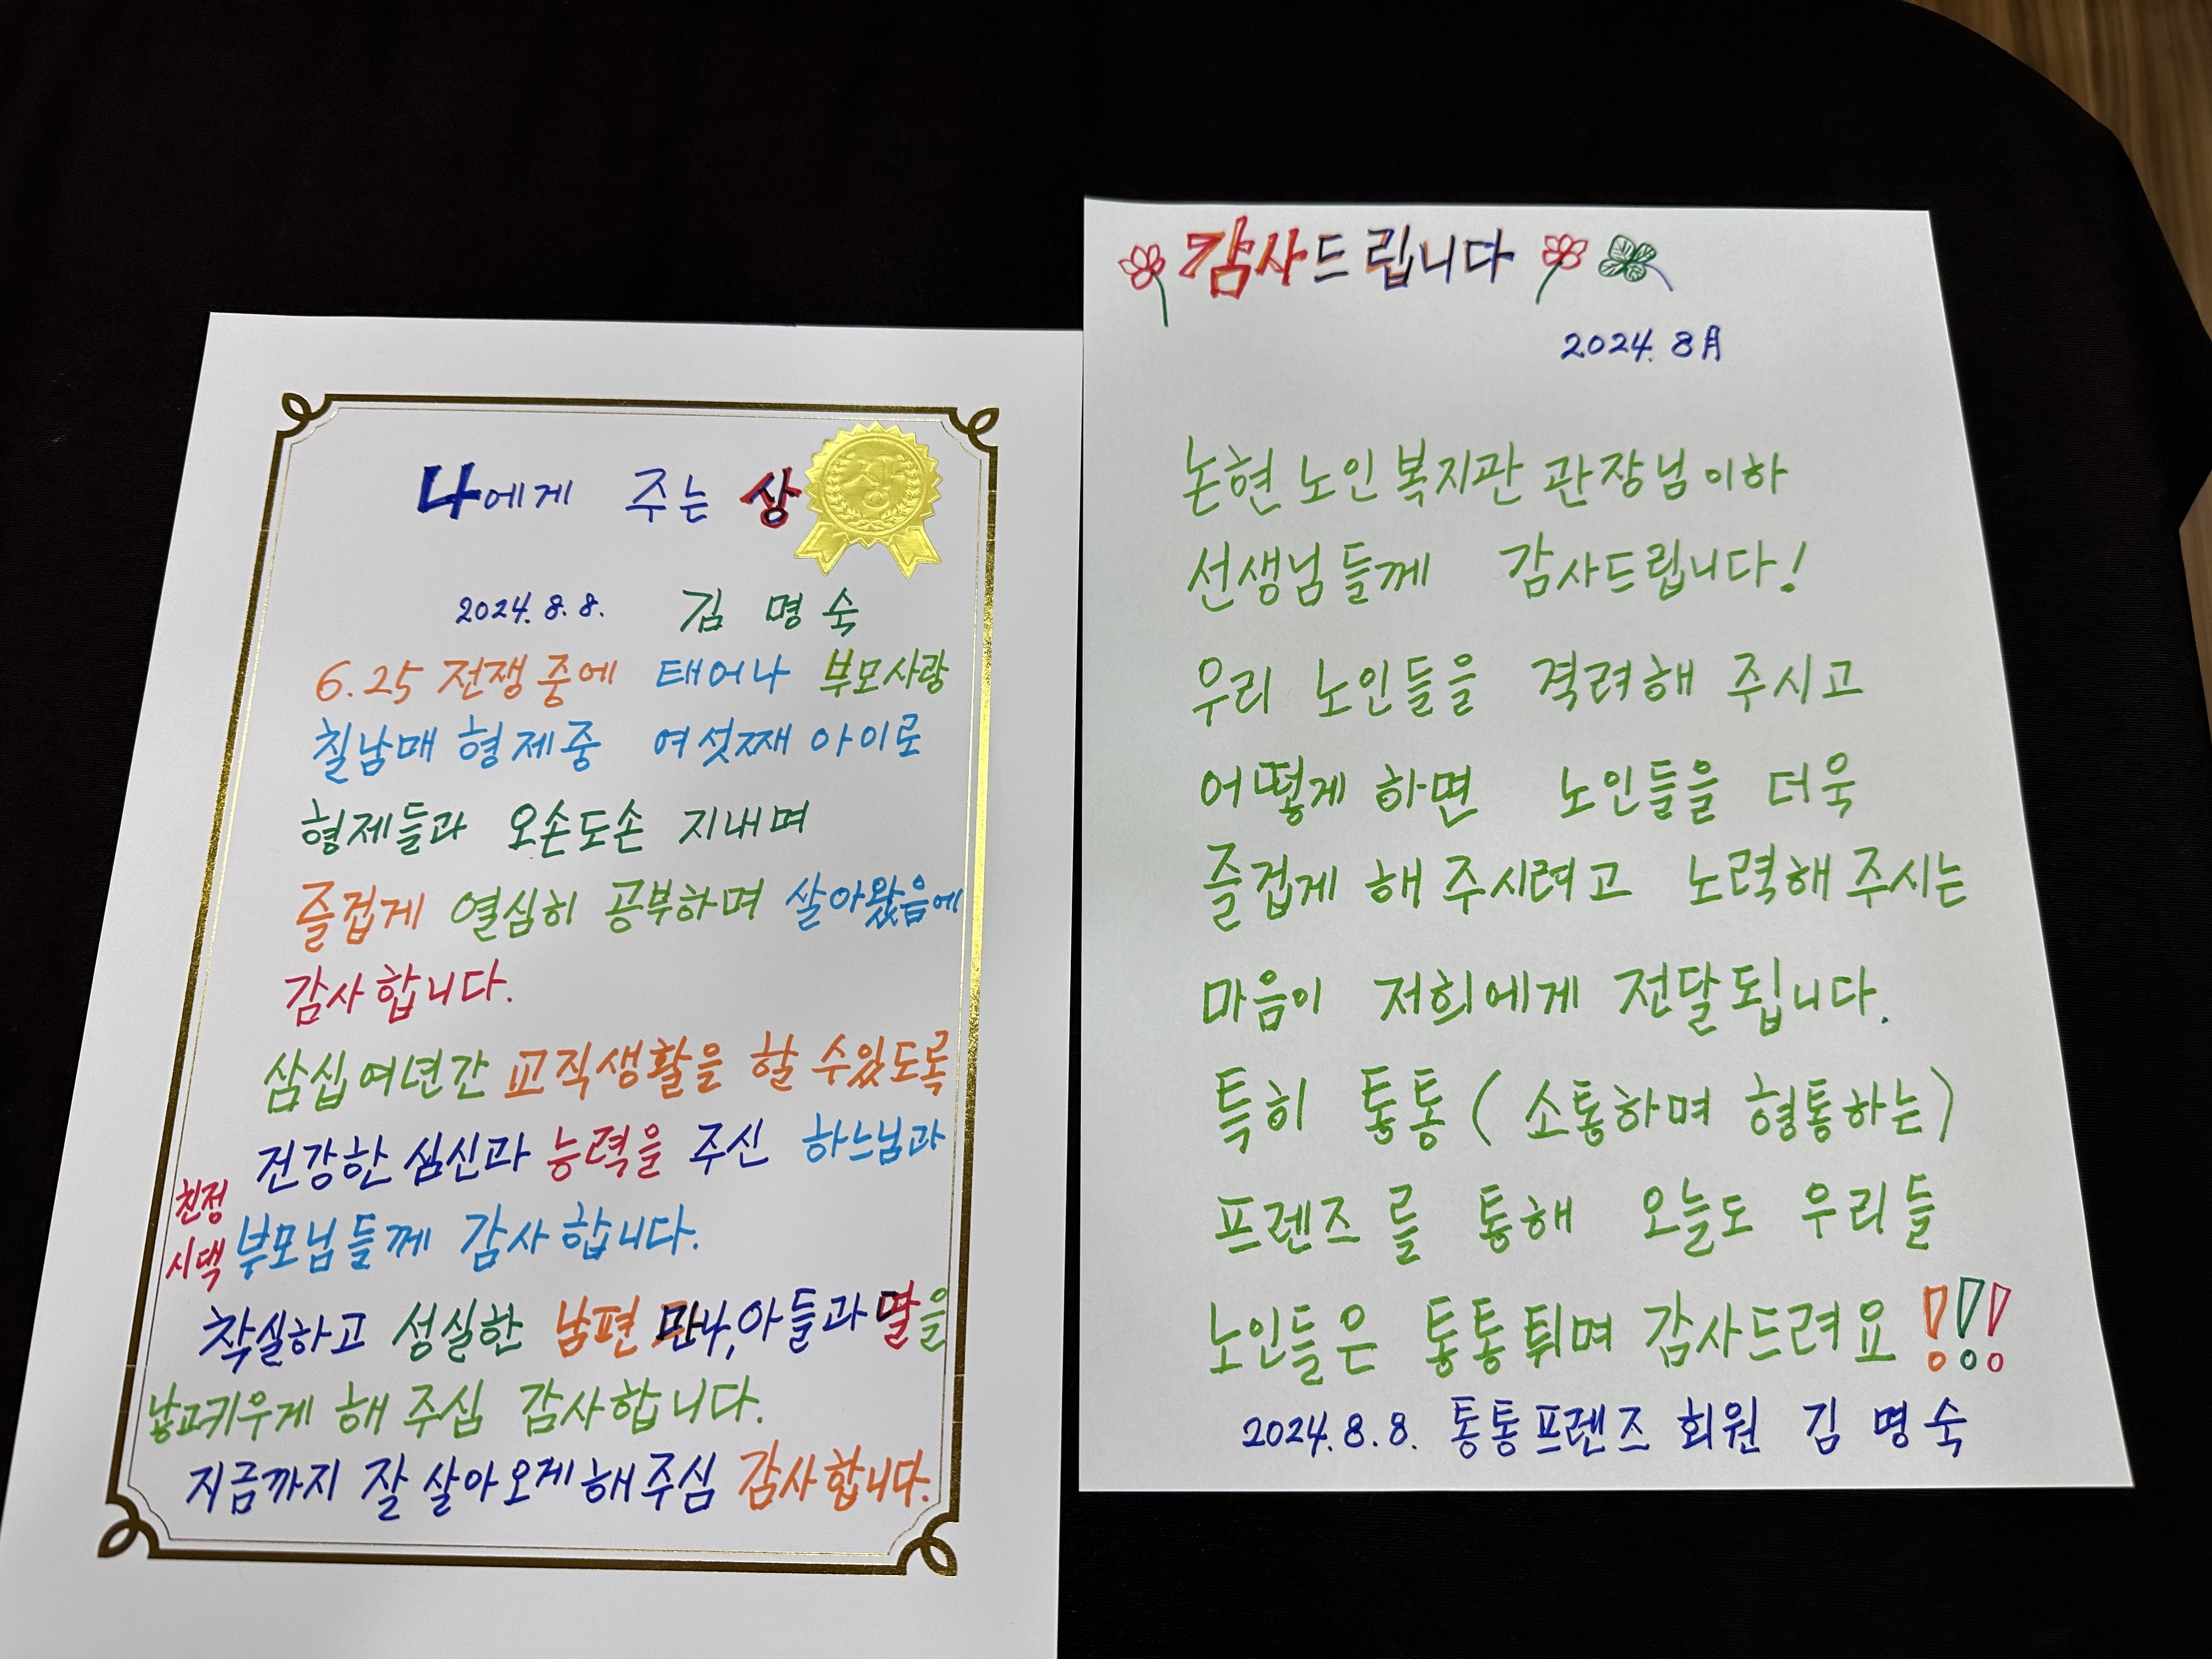 나에게 주는 상
상
2024. 8. 8. 김 명 숙
6.25 전쟁 중에 태어나 부모사랑
칠남매 형제중 여섯째 아이로
형제들과 오손도손 지내며
즐겁게 열심히 공부하며 살아왔음에
감사합니다.
삼십여년간 교직생활을 할 수있도록
건강한 심신과 능력을 주신 하느님과
친정
시댁 부모님들께 감사합니다.
착실하고 성실한 남편 만나, 아들과 딸을
낳고키우게 해 주심 감사합니다.
지금까지 잘 살아오게 해주심 감사합니다.
감사드립니다
2024. 8月
논현노인복지관 관장님이하
선생님들께 감사드립니다!
우리 노인들을 격려해 주시고
어떻게 하면 노인들을 더욱
즐겁게 해 주시려고 노력해 주시는
마음이 저희에게 전달됩니다.
특히 통통 ( 소통하며 형통하는)
프렌즈를 통해 오늘도 우리들
노인들은 통통튀며 감사드려요 !!!
2024. 8. 8. 통통프렌즈 회원 김 명 숙